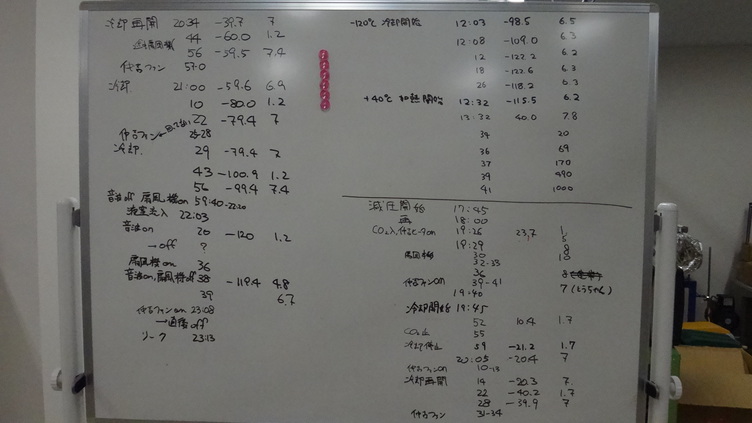 冷却再開 20:34 -39.7 7
44 -60.0 1.2
56 -59.5 7.4
仲吉ファン 57.0
冷却 21:00 -59.6 6.9
10 -80.0 1.2
22 -79.4 7
仲吉ファン 25-28
冷却 29 -79.4 7
43 -100.9 1.2
56 -99.4 7.4
音波off 扇風機on 59:40-22:20
液窒注入 22:03
音波on 20 -120 1.2
→off ?
扇風機on 36
音波on,扇風機off 38 -119.4 4.8
39 6.7
仲吉ファンon 23:08
→直後off
リーク 23:13
-120℃ 冷却開始 12:03 -98.5 6.5
12:08 -109.0 6.3
12 -122.2 6.2
18 -122.6 6.3
26 -118.2 6.3
+40℃ 加熱開始 12:32 -115.5 6.2
13:32 40.0 7.8
34 20
36 69
37 170
39 490
41 1000
減圧開始 17:45
18:00
CO₂入,仲吉ヒータon 19:26 23.7 1
19:29 5
扇風機 30 8
32-33 10
36
仲吉ファンon 39-41 7 (とうちゃく)
19:40
冷却開始 19:45
52 10.4 1.7
CO₂止 55
冷却停止 59 -21.2 1.7
20:05 -20.4 7
仲吉ファンon 10-13
冷却再開 14 -20.3 7
22 -40.2 1.7
28 -39.9 7
仲吉ファン 31-34